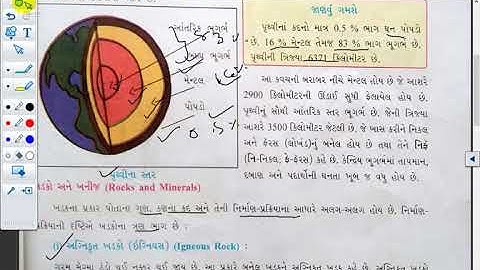 જાણવું ગમશે
પૃથ્વીનાં કદનો માત્ર 0.5 % ભાગ ઘન પોપડો
છે. 16 % મેન્ટલ તેમજ 83 % ભાગ ભૂગર્ભ છે.
પૃથ્વીની ત્રિજ્યા 6371 કિલોમીટર છે.
આંતરિક ભૂગર્ભ
ભૂગર્ભ
મેન્ટલ
પોપડો
0.5%
પૃથ્વીના સ્તર
આ કવચની બરાબર નીચે મેન્ટલ હોય છે જે આશરે
2900 કિલોમીટરની ઊંડાઈ સુધી ફેલાયેલ હોય છે.
પૃથ્વીનું સૌથી આંતરિક સ્તર ભૂગર્ભ છે. જેની ત્રિજ્યા
આશરે 3500 કિલોમીટર જેટલી છે. જે ખાસ કરીને નિકલ
અને ફેરસ (લોખંડ)નું બનેલ હોય છે તથા તેને નિફે
(નિ-નિકલ, ફે-ફેરસ) કહે છે. કેન્દ્રિય ભૂગર્ભમાં તાપમાન,
દબાણ અને પદાર્થોની ઘનતા ખૂબ જ વધુ હોય છે.
ખડકો અને ખનીજ (Rocks and Minerals)
ખડકના પ્રકાર પોતાના ગુણ, કણના કદ અને તેની નિર્માણ-પ્રક્રિયાના આધારે અલગ-અલગ હોય છે. નિર્માણ-
પ્રક્રિયાની દૃષ્ટિએ ખડકોના ત્રણ ભાગ છે :
(i) અગ્નિકૃત ખડકો (ઇગ્નિયસ) (Igneous Rock) :
ગરમ મેગ્મા ઠંડો થઈ નક્કર થઈ જાય છે. આ પ્રકારે બનેલ ખડકને અગ્નિકૃત ખડક કહે છે. અગ્નિકૃત ખડકો